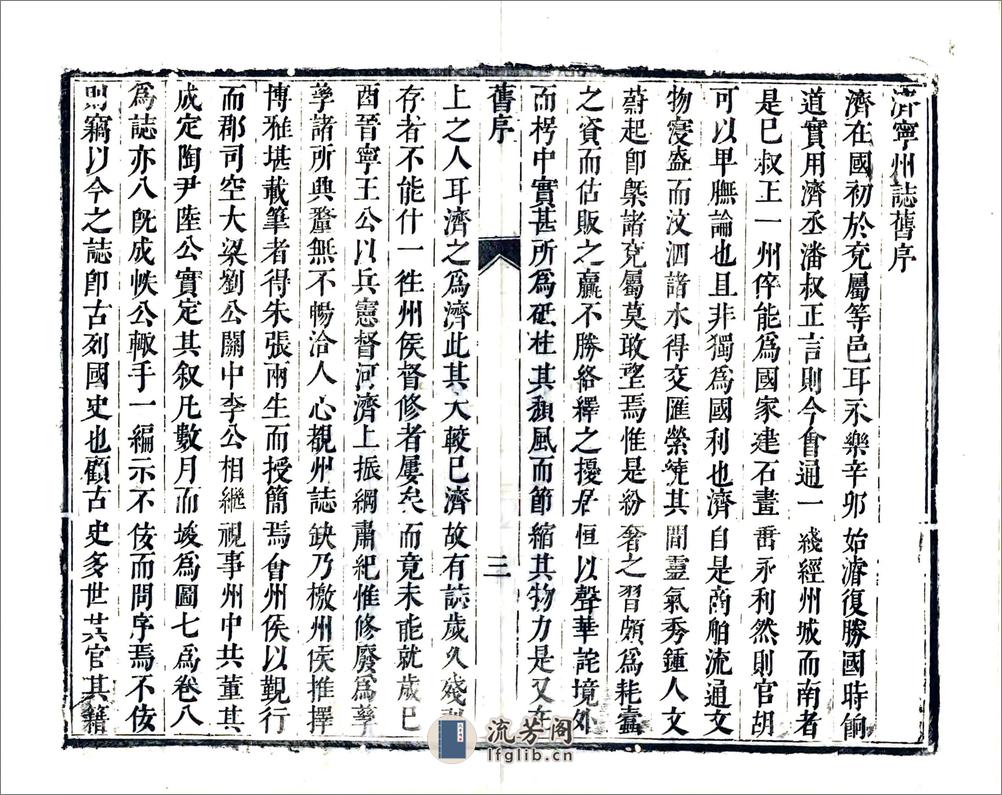 濟寧州誌舊序
濟在國初於兗屬等邑耳永樂辛卯始濬復勝國時餉
道實用濟丞潘叔正言則今會通一綫經州城而南者
是已叔正一州倅能為國家建石畫畨永利然則官胡
可以卑膴論也且非獨為國利也濟自是商舶流通文
物寖盛而汶泗諸水得交匯縈繞其間靈氣秀鍾人文
蔚起卽槩諸兗屬莫敢望焉惟是紛奢之習頗為耗蠹
之資而估販之贏不勝絡繹之擾君恒以聲華詫境外
而楞中實甚所為砥柱其頹風而節縮其物力是又在
舊序
三
上之人耳濟之為濟此其大較已濟故有誌歲久殘
存者不能什一徃州侯督修者屢矣而竟未能就歲己
酉晉寧王公以兵憲督河濟上振綱肅紀惟修廢為孳
孳諸所典釐無不暢洽人心覩州誌缺乃檄州侯推擇
博雅堪載筆者得朱張兩生而授簡焉會州侯以覲行
而郡司空大梁劉公關中李公相繼視事州中共董其
成定陶尹陸公實定其叙凡數月而竣為圖七為卷八
為誌亦八旣成帙公輙手一編示不佞而問序焉不佞
則竊以今之誌卽古列國史也顧古史多世其官其籍
流芳阁
lfglib.cn